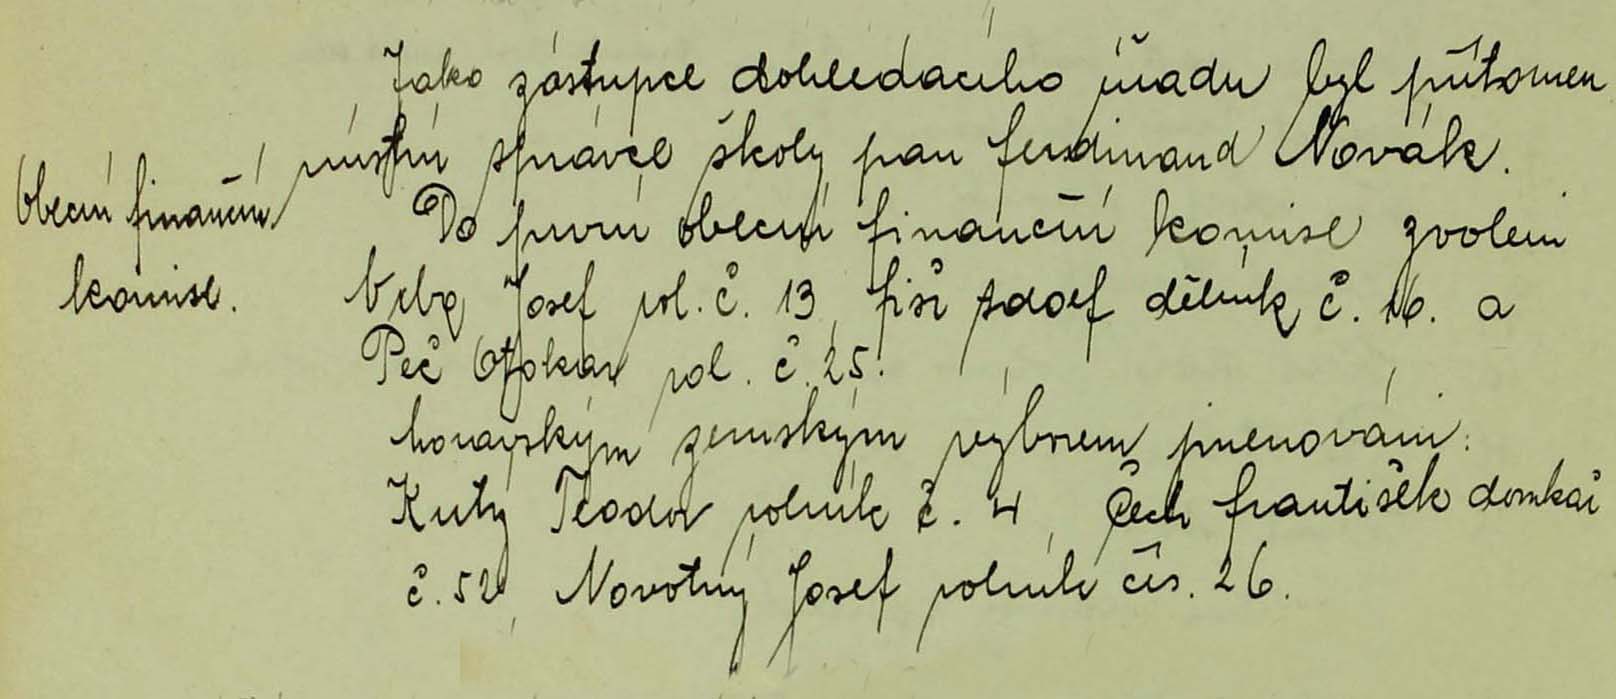 Jako zástupce dohledacího úřadu byl přítomen
místní správce školy pan Ferdinand Novák.
Obecní finanční
komise.
Do první obecní finanční komise zvoleni
Josef rol. č. 13, Fišr Adolf dělník č. 16. a
Peč Otokar rol. č. 25.
Moravským zemským výborem jmenováni:
Kutý Teodor rolník č. 4, Čech František domkař
č. 52, Novotný Josef rolník čís. 26.